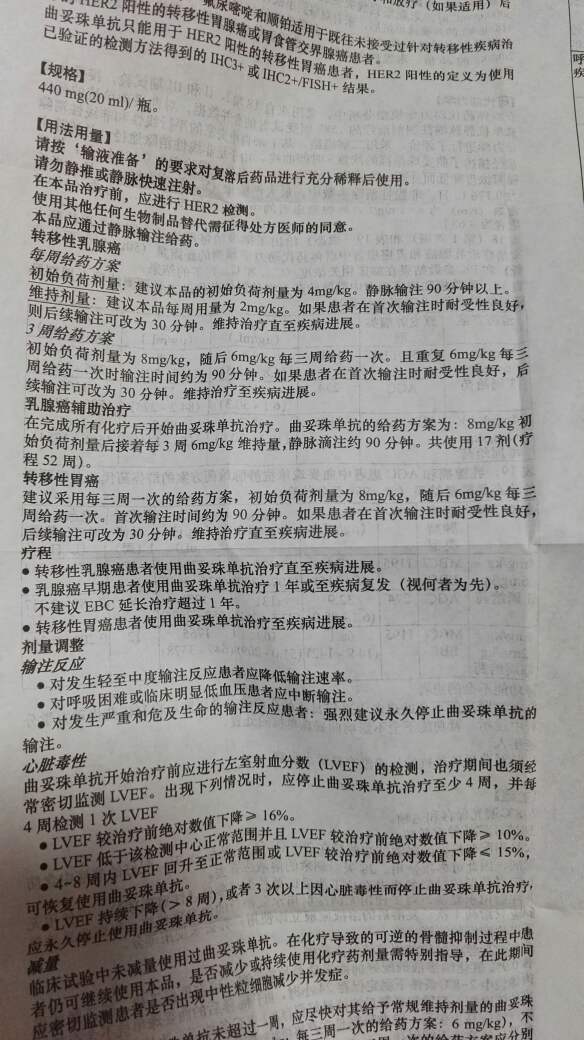 和放疗（如果适用）后
HER2 阳性的转移性胃腺癌或胃食管交界腺癌患者。
氟尿嘧啶和顺铂适用于既往未接受过针对转移性疾病治
曲妥珠单抗只能用于 HER2 阳性的转移性胃癌患者，HER2 阳性的定义为使用
已验证的检测方法得到的 IHC3+ 或 IHC2+/FISH+ 结果。
【规格】
440 mg(20 ml)/ 瓶。
【用法用量】
请按‘输液准备’的要求对复溶后药品进行充分稀释后使用。
请勿静推或静脉快速注射。
在本品治疗前，应进行 HER2 检测。
使用其他任何生物制品替代需征得处方医师的同意。
本品应通过静脉输注给药。
转移性乳腺癌
每周给药方案
初始负荷剂量：建议本品的初始负荷剂量为 4mg/kg。静脉输注 90 分钟以上。
维持剂量：建议本品每周用量为 2mg/kg。如果患者在首次输注时耐受性良好，
则后续输注可改为 30 分钟。维持治疗直至疾病进展。
3 周给药方案
初始负荷剂量为 8mg/kg，随后 6mg/kg 每三周给药一次。且重复 6mg/kg 每三
周给药一次时输注时间约为 90 分钟。如果患者在首次输注时耐受性良好，后
续输注可改为 30 分钟。维持治疗至疾病进展。
乳腺癌辅助治疗
在完成所有化疗后开始曲妥珠单抗治疗。曲妥珠单抗的给药方案为：8mg/kg 初
始负荷剂量后接着每 3 周 6mg/kg 维持量,静脉滴注约 90 分钟。共使用 17 剂(疗
程 52 周)。
转移性胃癌
建议采用每三周一次的给药方案，初始负荷剂量为 8mg/kg，随后 6mg/kg 每三
周给药一次。首次输注时间约为 90 分钟。如果患者在首次输注时耐受性良好，
后续输注可改为 30 分钟。维持治疗直至疾病进展。
疗程
● 转移性乳腺癌患者使用曲妥珠单抗治疗直至疾病进展。
● 乳腺癌早期患者使用曲妥珠单抗治疗 1 年或至疾病复发（视何者为先）。
不建议 EBC 延长治疗超过 1 年。
● 转移性胃癌患者使用曲妥珠单抗治疗至疾病进展。
剂量调整
输注反应
● 对发生轻至中度输注反应患者应降低输注速率。
● 对呼吸困难或临床明显低血压患者应中断输注。
● 对发生严重和危及生命的输注反应患者：强烈建议永久停止曲妥珠单抗的
输注。
心脏毒性
曲妥珠单抗开始治疗前应进行左室射血分数（LVEF）的检测，治疗期间也须经
常密切监测 LVEF。出现下列情况时，应停止曲妥珠单抗治疗至少 4 周，并每
4 周检测 1 次 LVEF
● LVEF 较治疗前绝对数值下降≥ 16%。
● LVEF 低于该检测中心正常范围并且 LVEF 较治疗前绝对数值下降≥ 10%。
● 4~8 周内 LVEF 回升至正常范围或 LVEF 较治疗前绝对数值下降≤ 15%，
可恢复使用曲妥珠单抗。
● LVEF 持续下降(＞ 8 周)，或者 3 次以上因心脏毒性而停止曲妥珠单抗治疗，
应永久停止使用曲妥珠单抗。
减量
临床试验中未减量使用过曲妥珠单抗。在化疗导致的可逆的骨髓抑制过程中患
者仍可继续使用本品，是否减少或持续使用化疗药剂量需特别指导，在此期间
应密切监测患者是否出现中性粒细胞减少并发症。
抗未超过一周，应尽快对其给予常规维持剂量的曲妥珠
每三周一次的给药方案：6 mg/kg），不
一次的给药方案应分别
呼
疾